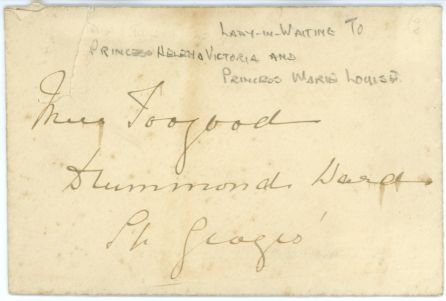 LADY-IN-WAITING TO
PRINCESS HELENA VICTORIA AND
PRINCESS MARIE LOUISE.
Miss Toogood
Drummond Ward
St. Georges'